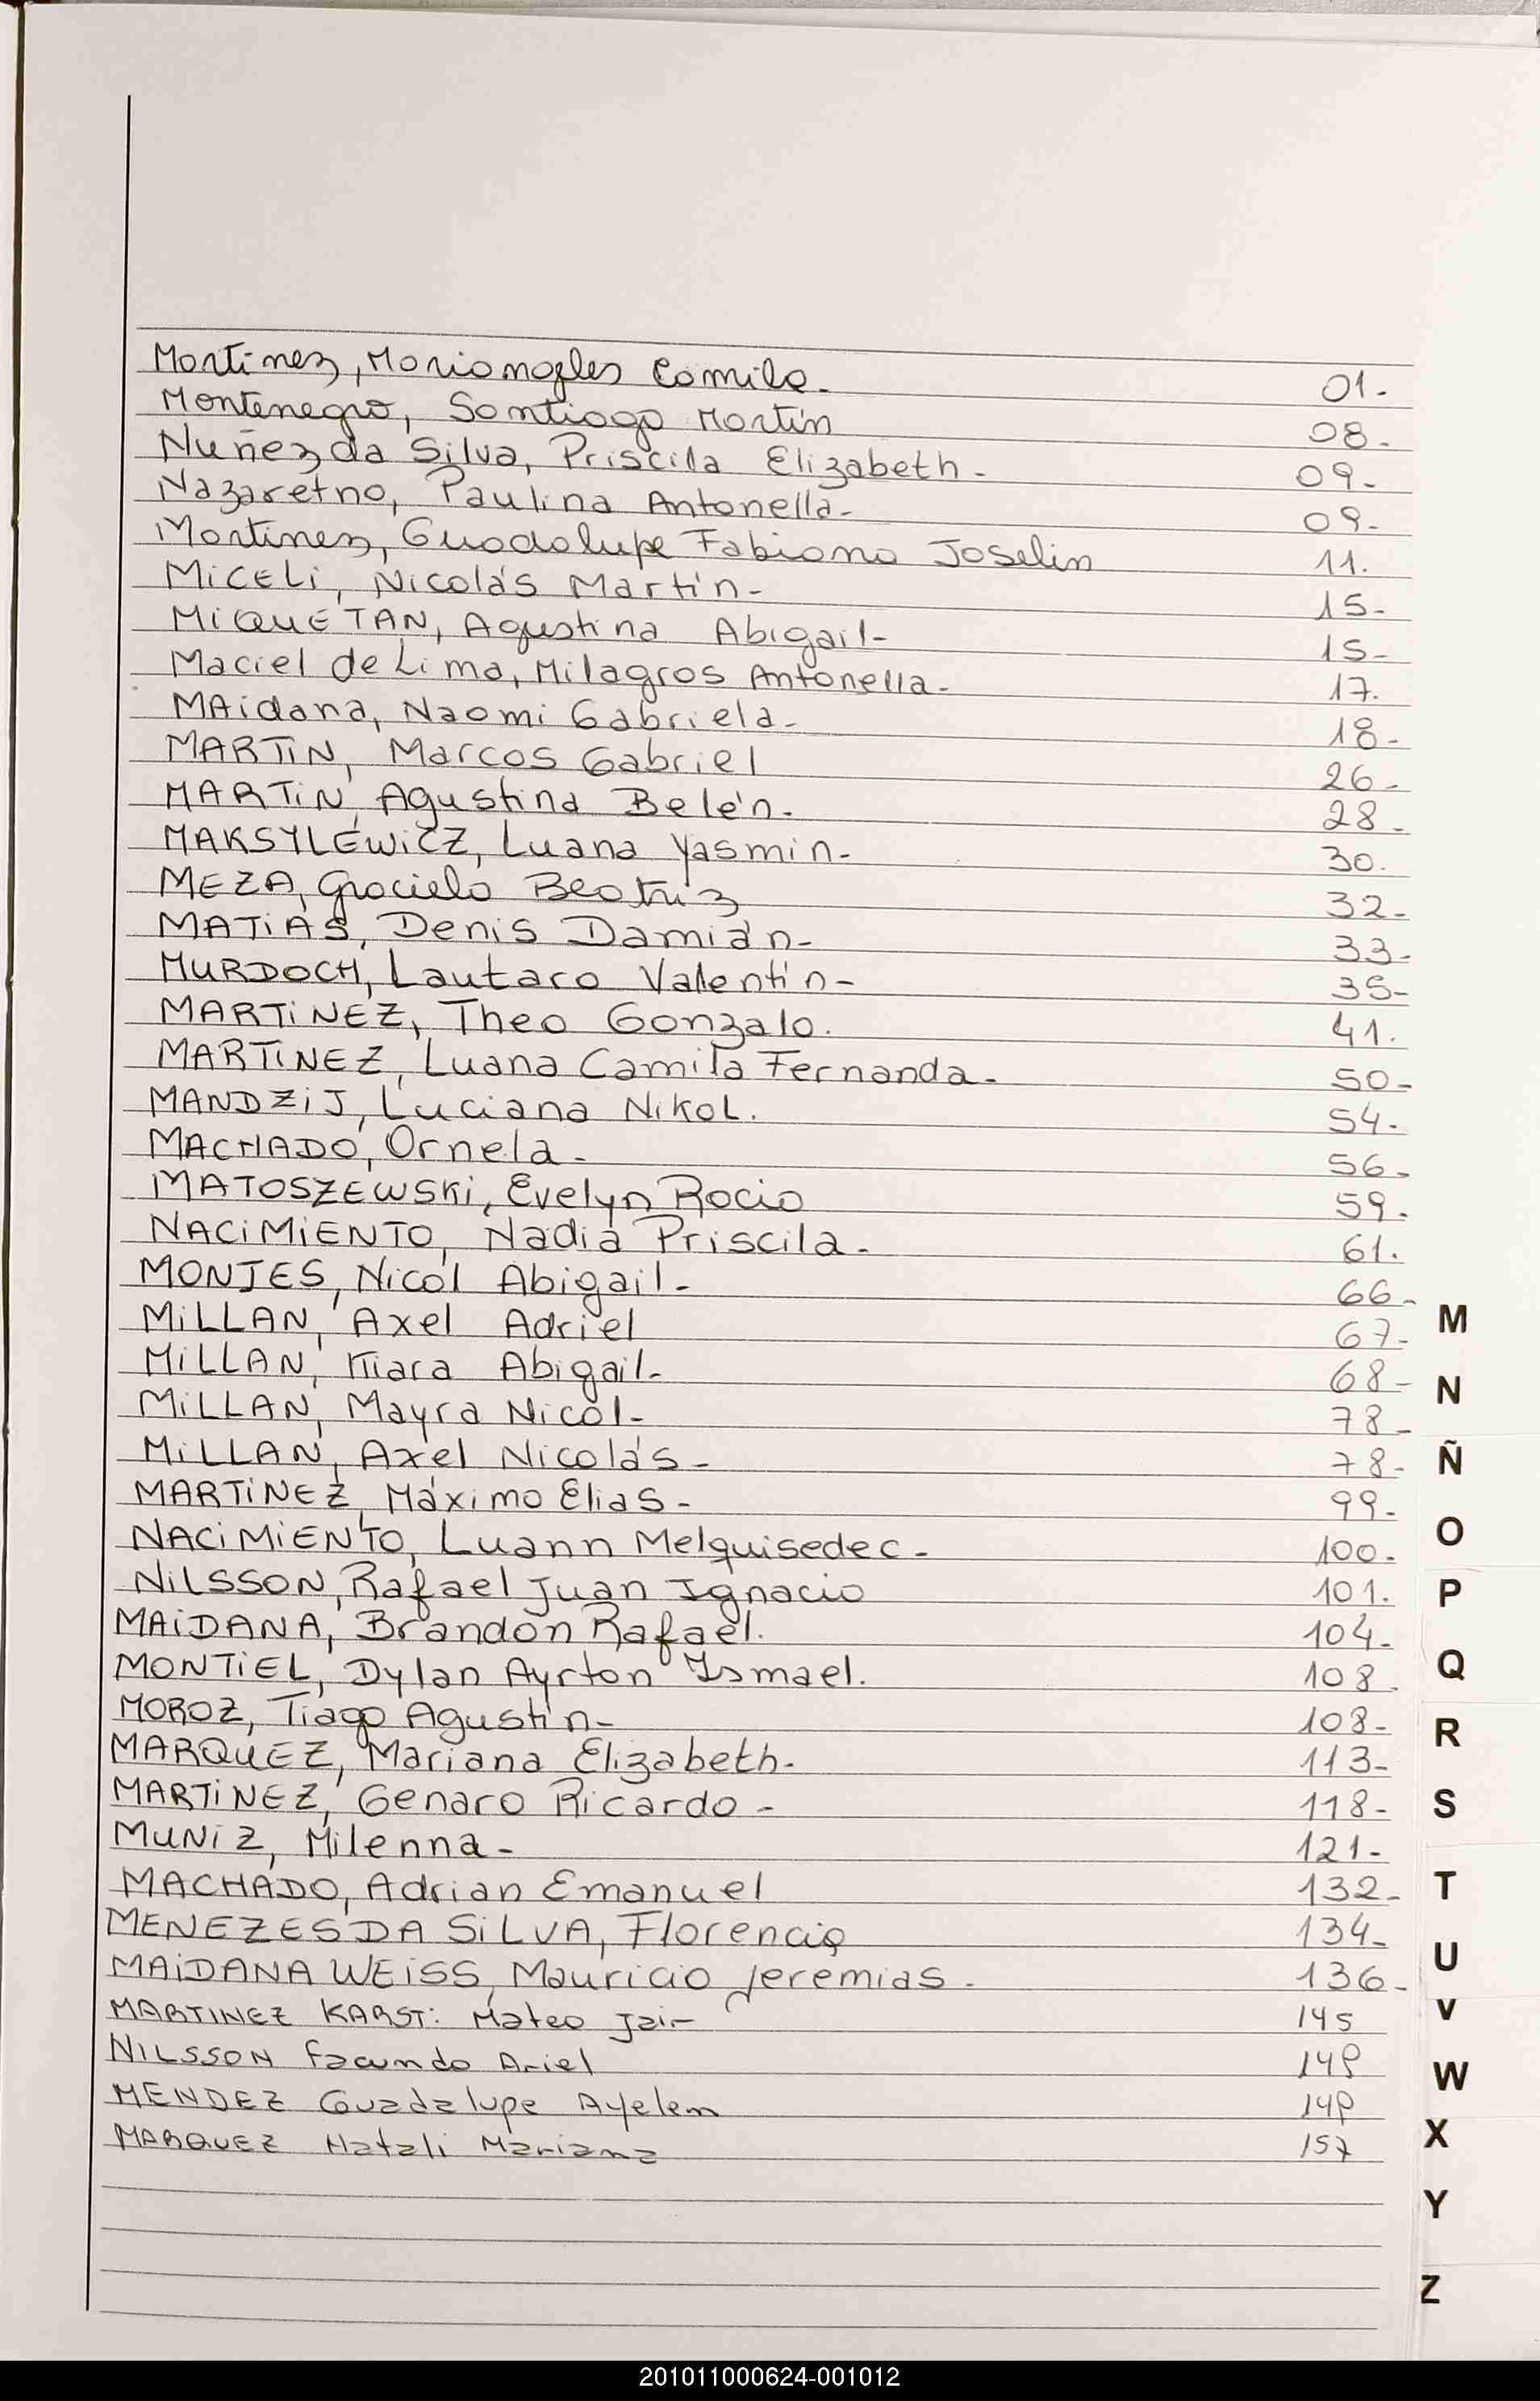 Martinez, Mariangeles Camila. 01.
Montenegro, Santiago Martín 08.
Nuñez da Silva, Priscila Elizabeth. 09.
Nazaretno, Paulina Antonella. 09.
Martinez, Guadalupe Fabiana Joselin 11.
MiCELi, Nicolás Martín. 15.
MiQUETAN, Agustina Abigail- 15-
Maciel de Lima, Milagros Antonella. 17.
MAidana, Naomi Gabriela. 18-
MARTiN, Marcos Gabriel 26.
MARTiN, Agustina Belén. 28.
MAKSYLEWiCZ, Luana Yasmin. 30.
MEZA, Graciela Beatriz 32-
MATiAS, Denis Damián. 33-
MURDOCH, Lautaro Valentín- 35-
MARTiNEZ, Theo Gonzalo. 41.
MARTiNEZ, Luana Camila Fernanda. 50-
MANDZiJ, Luciana Nikol. 54.
MACHADO, Ornela. 56.
MATOSZEWSKi, Evelyn Rocio 59.
NACiMiENTO, Nadia Priscila. 61.
MONTES, Nicol Abigail. 66.
MiLLAN, Axel Adriel 67-
MiLLAN, Kiara Abigail. 68-
MiLLAN, Mayra Nicol- 78-
MiLLAN, Axel Nicolás- 78-
MARTiNEZ, Máximo Elias- 99-
NACiMiENTO, Luann Melquisedec. 100.
NiLSSON, Rafael Juan Ignacio 101.
MAiDANA, Brandon Rafael. 104-
MONTiEL, Dylan Ayrton Ismael. 108.
MOROZ, Tiago Agustín- 108-
MARQUEZ, Mariana Elizabeth. 113-
MARTiNEZ, Genaro Ricardo- 118-
MUNiZ, Milenna- 121-
MACHADO, Adrian Emanuel 132-
MENEZES DA SiLVA, Florencia 134-
MAiDANA WEiSS, Mauricio Jeremias. 136-
MARTINEZ KARST: Mateo Jair 145
NILSSON Facundo Ariel 149
MENDEZ Guadalupe Ayelem 149
MARQUEZ Natali Mariana 157
M
N
Ñ
O
P
Q
R
S
T
U
V
W
X
Y
Z
201011000624-001012